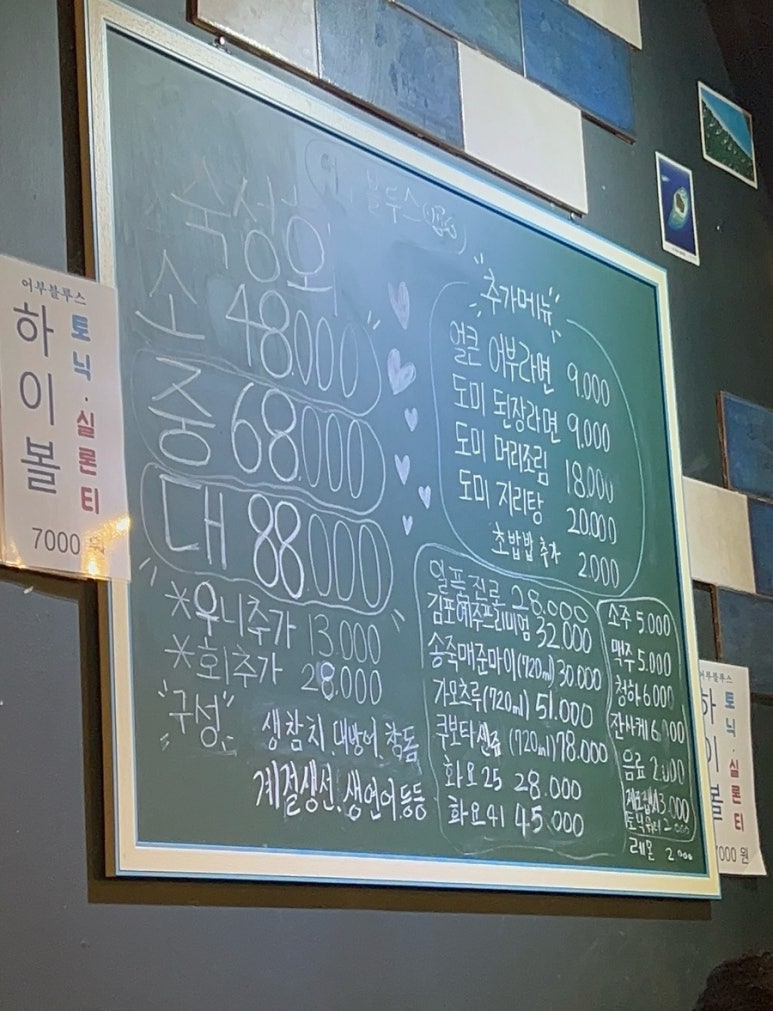 블루스
숙성회
소 48.000
중 68.000
대 88.000
*우니추가 13.000
*회추가 28.000
"구성"
생참치, 대방어, 참돔
계절생선, 생연어, 등등
"추가메뉴"
얼큰 어부라면 9.000
도미 된장라면 9.000
도미 머리조림 18.000
도미 지리탕 20.000
초밥밥 추가 2.000
일품진로 28.000
김포예주프리미엄 32.000
송죽매준마이(720ml) 30.000
가모츠루(720ml) 51.000
쿠보타 센쥬 (720ml) 78.000
화요25 28.000
화요41 45.000
소주 5.000
맥주 5.000
청하 6.000
잔사케 6.000
음료 2.000
3.000
토닉워터 2.000
레몬 2.000
어부블루스
하이볼
토닉·실론티
7000 원
어부블루스
하이볼
토닉·실론티
7000 원